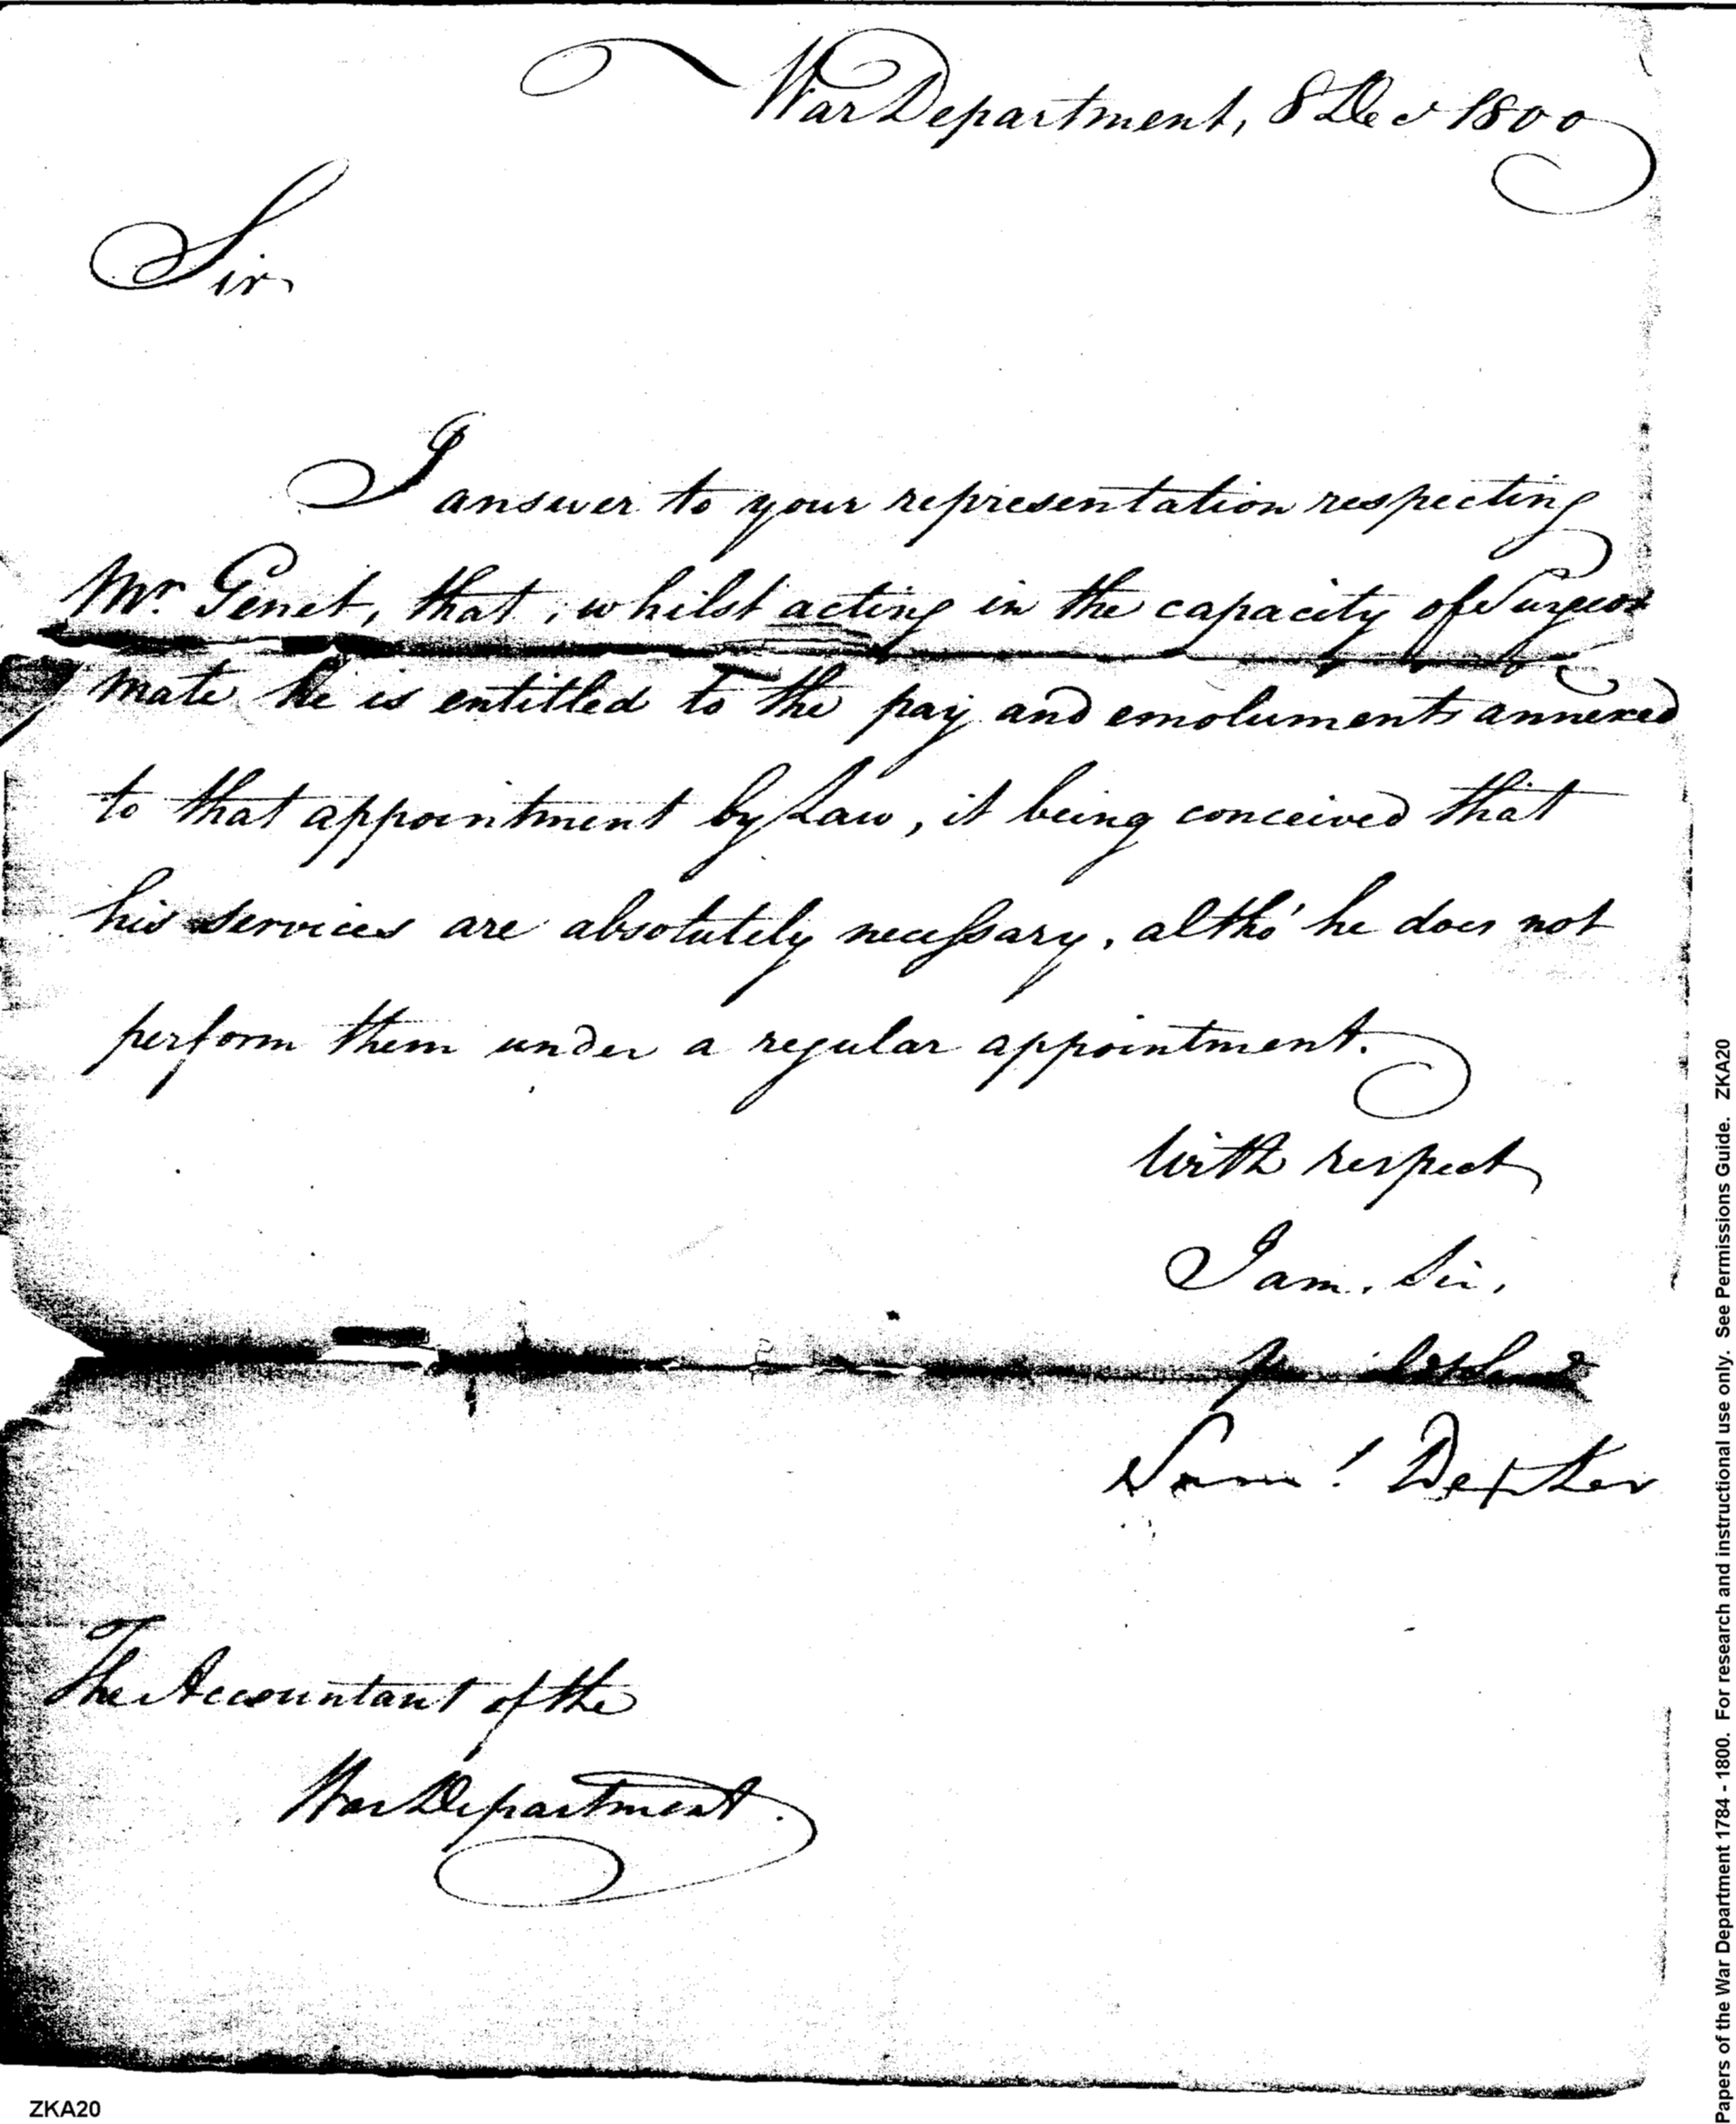 War Department, 8 Dec 1800
Sir
I answer to your representation respecting
Mr. Genet, that, whilst acting in the capacity of Surgeon
mate he is entitled to the pay and emoluments annexed
to that appointment by Law, it being conceived that
his services are absolutely necessary, altho' he does not
perform them under a regular appointment.
with respect
I am, Sir,
Saml Dexter
The Accountant of the
War Department.
ZKA20
Papers of the War Department 1784 - 1800. For research and instructional use only. See Permissions Guide. ZKA20